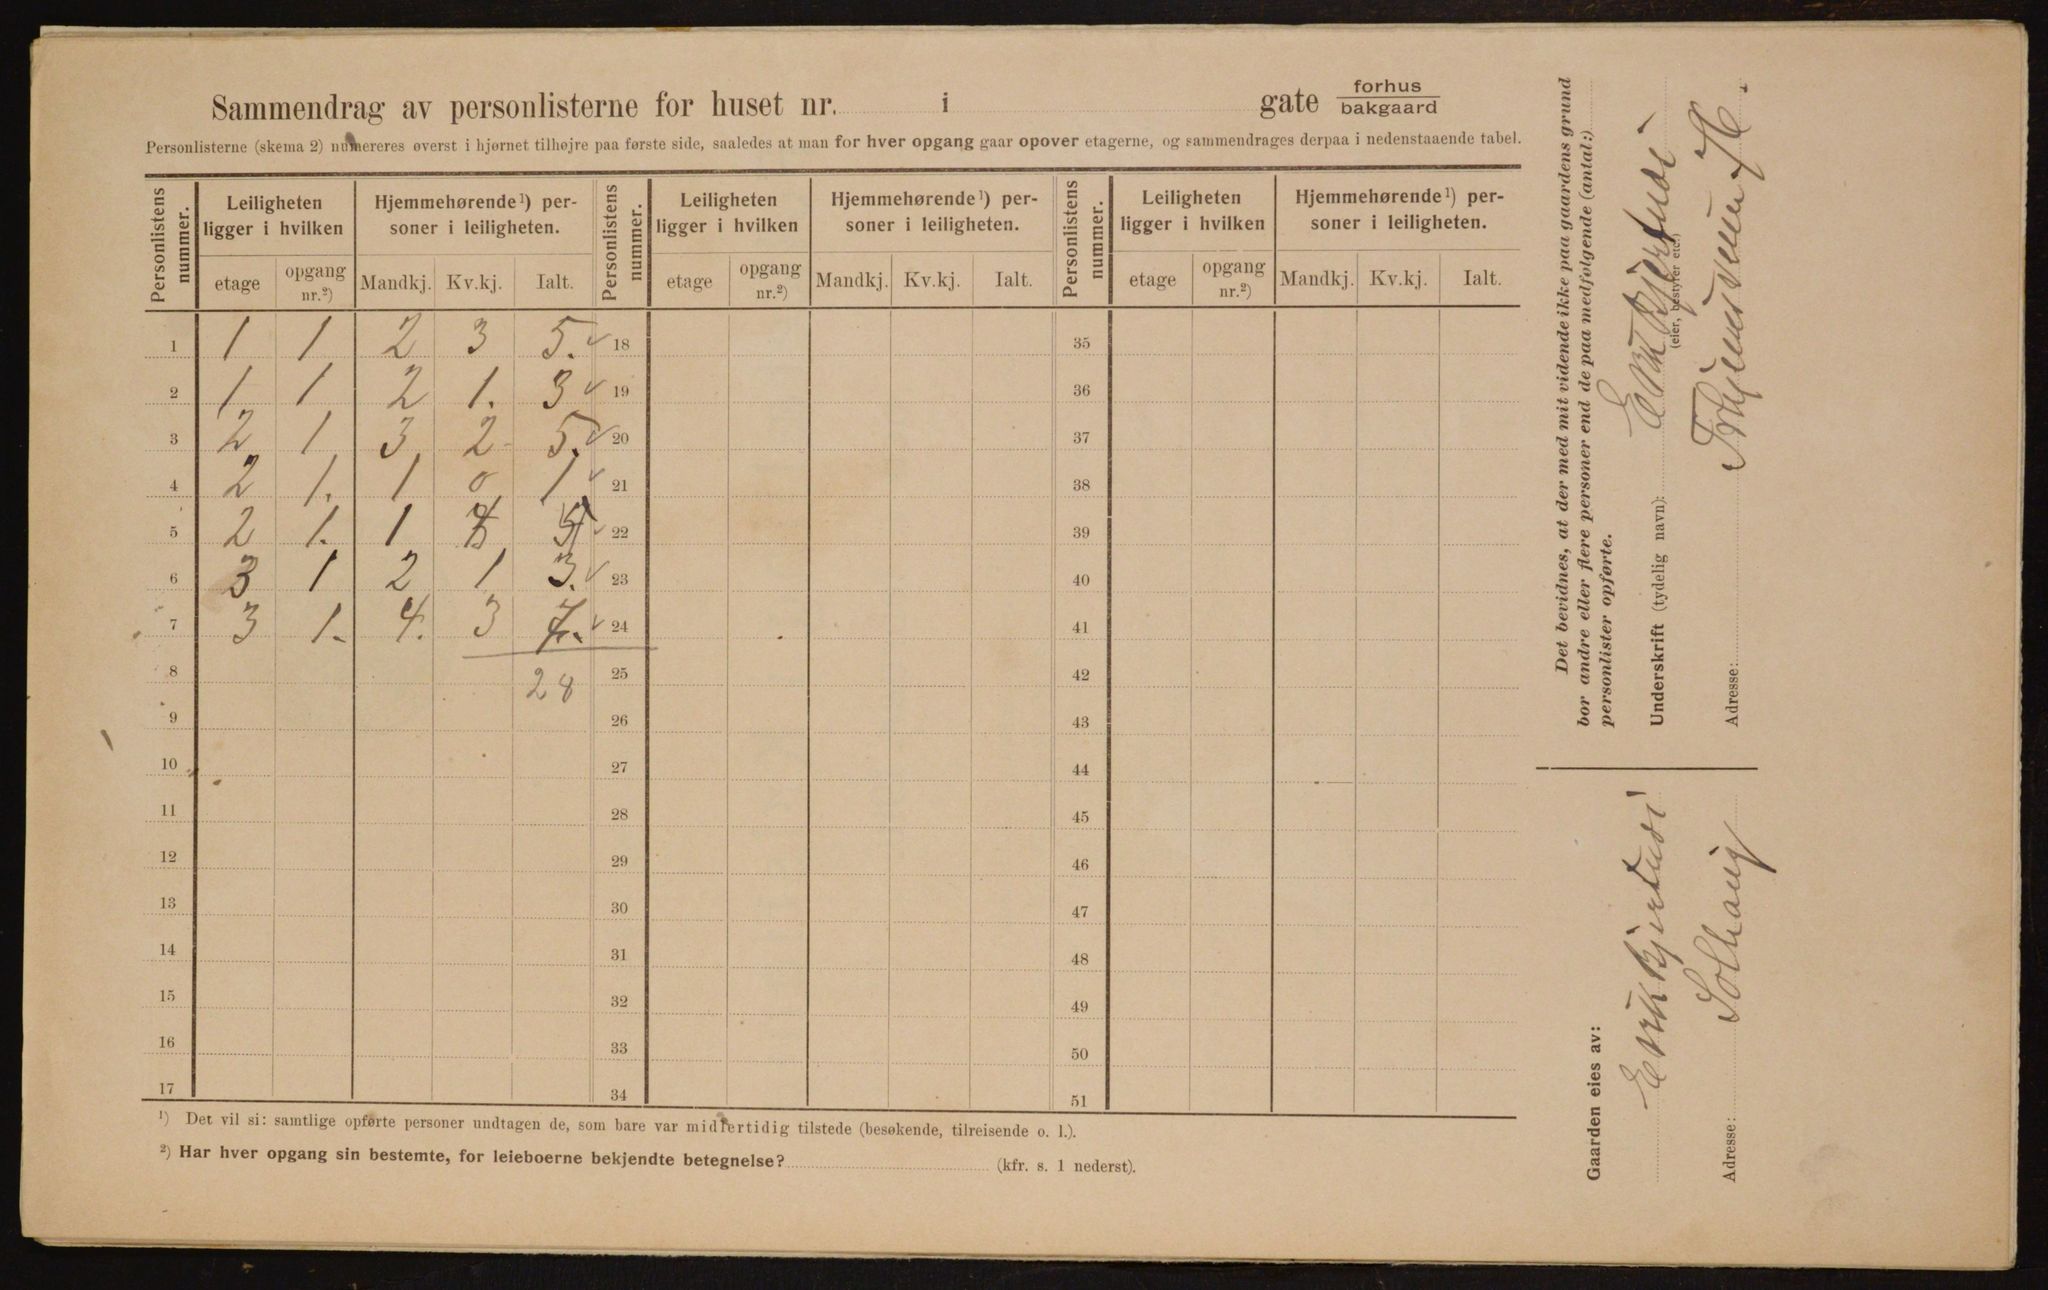 Sammendrag av personlisterne for huset nr. i gate forhus bakgaard
Personlisterne (skema 2) numereres øverst i hjørnet tilhøjre paa første side, saaledes at man for hver opgang gaar opover etagerne, og sammendrages derpaa i nedenstaaende tabel.
Personlistens nummer. Leiligheten ligger i hvilken Hjemmehørende¹) personer i leiligheten. Personlistens nummer. Leiligheten ligger i hvilken Hjemmehørende¹) personer i leiligheten. Personlistens nummer. Leiligheten ligger i hvilken Hjemmehørende¹) personer i leiligheten.
etage opgang nr.²) Mandkj. Kv.kj. Ialt. etage opgang nr.²) Mandkj. Kv.kj. Ialt. etage opgang nr.²) Mandkj. Kv.kj. Ialt.
1 1 1 2 3 5. 18 35
2 1 1 2 1. 3 19 36
3 2 1 3 2 5. 20 37
4 2 1. 1 0 1 21 38
5 2 1. 1 22 39
6 3 1 2 1 3. 23 40
7 3 1. 4. 3 7. 24 41
8 28 25 42
9 26 43
10 27 44
11 28 45
12 29 46
13 30 47
14 31 48
15 32 49
16 33 50
17 34 51
¹) Det vil si: samtlige opførte personer undtagen de, som bare var midlertidig tilstede (besøkende, tilreisende o. l.).
²) Har hver opgang sin bestemte, for leieboerne bekjendte betegnelse? (kfr. s. 1 nederst).
Det bevidnes, at der med mit vidende ikke paa gaardens grund
bor andre eller flere personer end de paa medfølgende (antal:)
personlister opførte.
Underskrift (tydelig navn):
(eier, bestyrer etc.)
Adresse:
Gaarden eies av:
Adresse: Solhaug